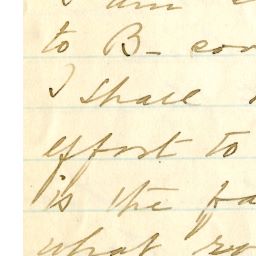 I am
to B- con
I shall
effort to
is the fa
what